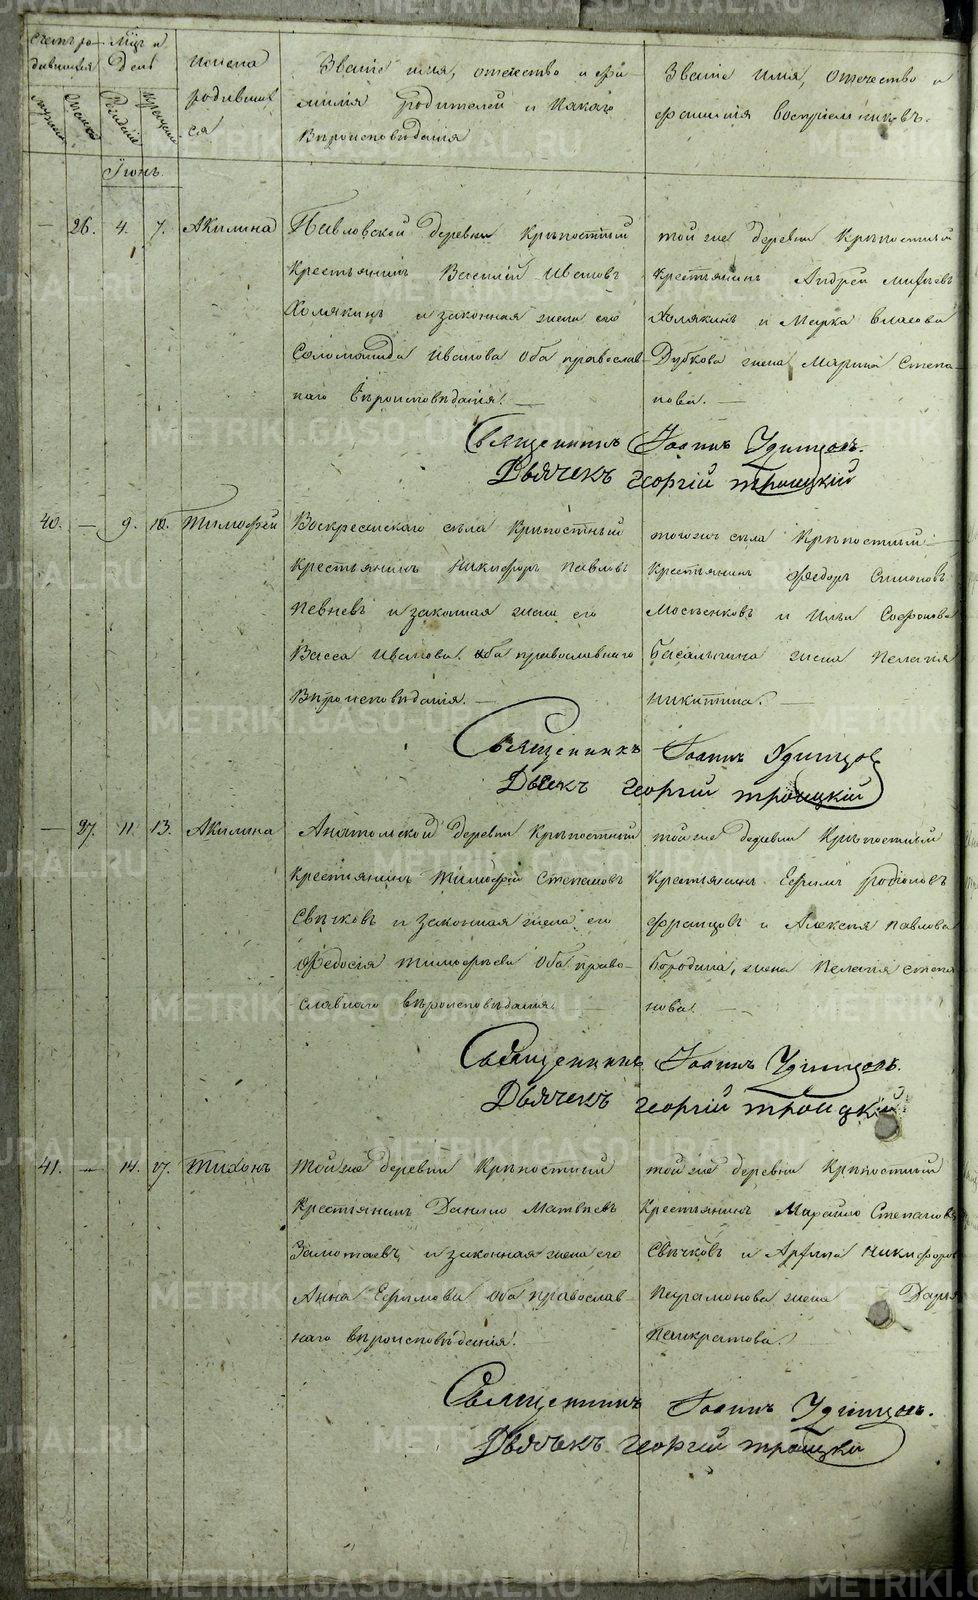 Счетъ ро-
дившихся
Мужска
Женска
Мцъ и
День
Рожденiе
Крещенiе
Iюнь.
Имена
родивших
ся
Званiе имя, отечество и фа
милiя родителей и какаго
Вѣроисповѣданiя
Званiе имя, отечество и
фамилiя воспрiемниковъ.
— 26. 4. 7. Акилина
Павловской деревни Крѣпостный
Крестьянинъ Василiй Ивановъ
Холякинъ и законная жена его
Соломонида Иванова Оба православ-
наго Вѣроисповѣданiя. —
той же деревни Крѣпостный
Крестьянинъ Андрей
Холякинъ и Марка Власова
Дубкова жена Марина Степа-
нова. —
Священникъ Iоаннъ Удинцовъ.
Дьячекъ Георгiй Троицкiй
40. — 9. 10. Тимофей
Воскресенскаго села Крѣпостный
Крестьянинъ Никифоръ Павловъ
Певневъ и законная жена его
Васса Иванова. Оба православнаго
Вѣроисповѣданiя. —
тогожъ села Крѣпостный
Крестьянинъ Федоръ Симоновъ
Мосѣенковъ и Ильи Софонова
Басалыгина жена Пелагiя
Никитина. —
Священникъ Iоаннъ Удинцов
Дьячекъ Георгiй Троицкiй
— 27. 11. 13. Акилина
Анатольской деревни Крѣпостный
Крестiянинъ Тимофей Степановъ
Свѣчковъ и законная жена его
Федосiя Тимофѣева Оба право-
славнаго вѣроисповѣданiя. —
той же деревни Крѣпостный
Крестьянинъ Ефимъ Родiоновъ
Францовъ и Алексѣя Павлова
Бородина, жена Пелагiя степа
нова. —
Священникъ Iоаннъ Удинцовъ.
Дьячекъ Георгiй Троицкiй
41. — 14. 17. Тихонъ
Той же деревни Крѣпостный
Крестiянинъ Данило Матвѣевъ
Замотаевъ и законная жена его
Анна Ефимова Оба православ-
наго вѣроисповѣданiя.
той же деревни Крѣпостный
Крестьянинъ Михайло Степановъ
Свѣчковъ и Никифоров
Парамонова жена Дарья
Панкратова.
Священникъ Iоаннъ Удинцовъ.
Дьячекъ Георгiй Троицкi
METRIKI.GASO-URAL.RU